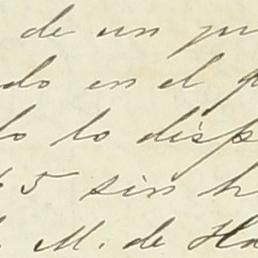 de un
do en el
lo lo disp
5 sin h
M. de Ha